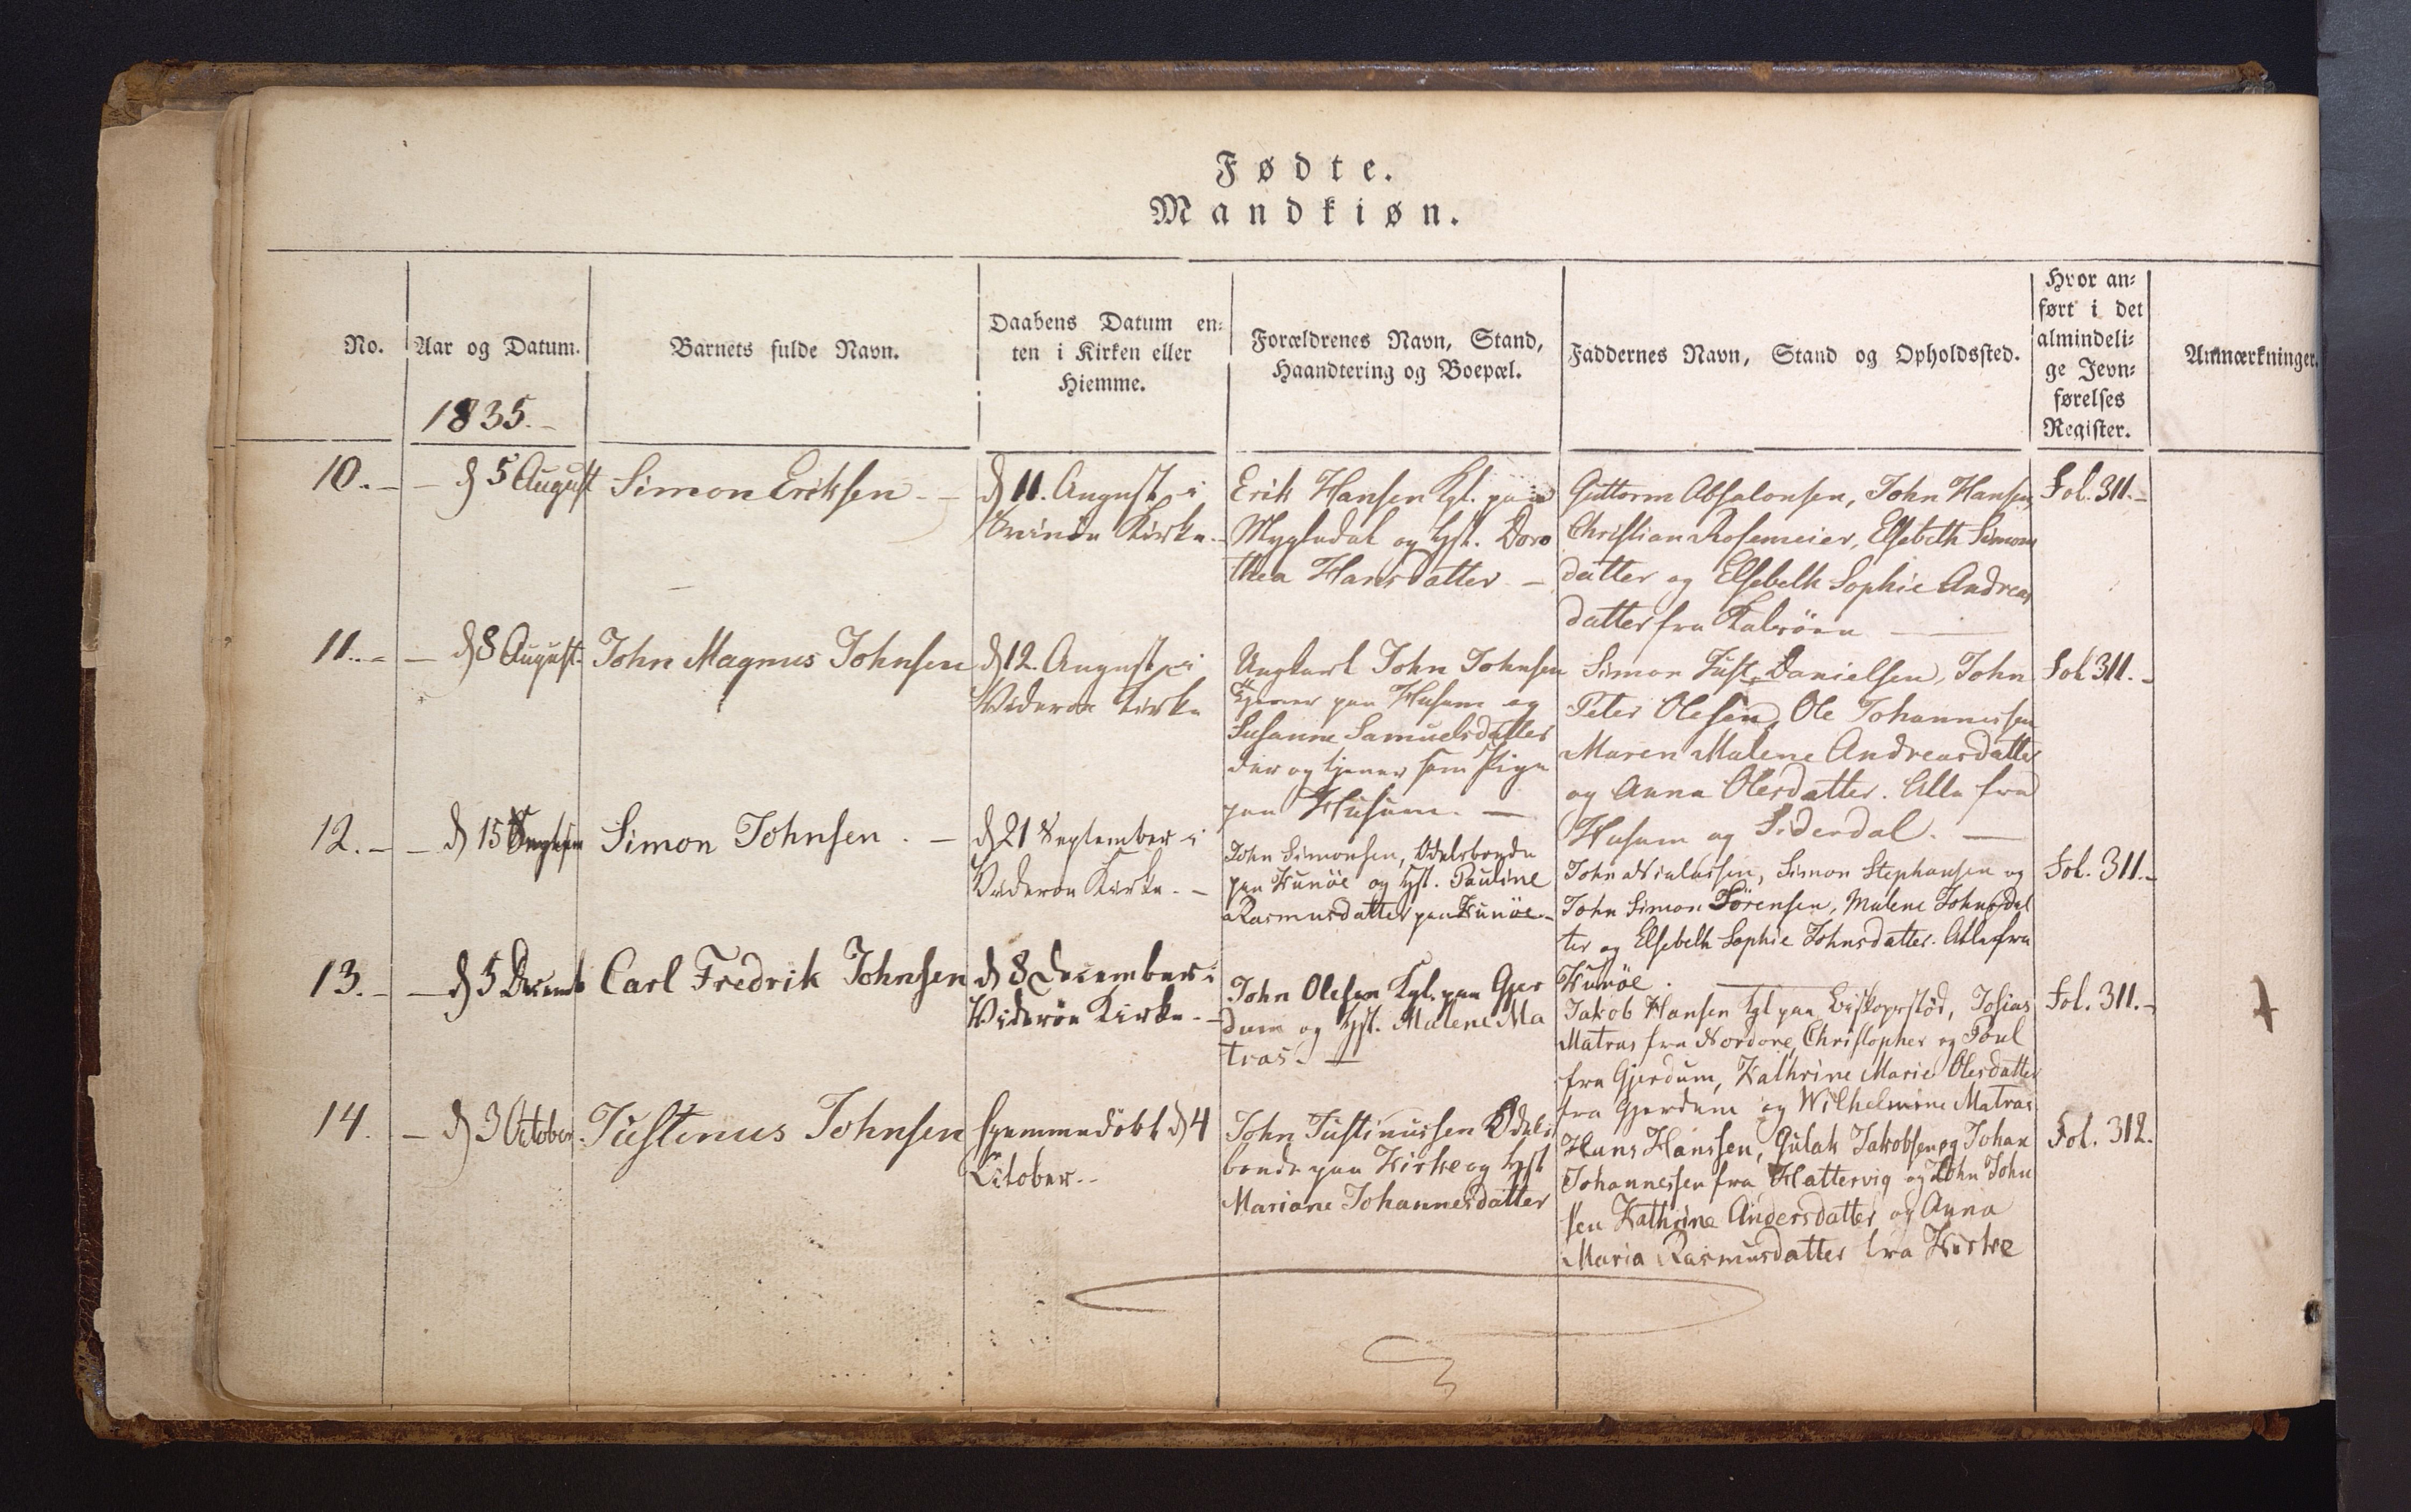 Fødte.
Mandkiøn.
No.
Aar og Datum.
1835.-
Barnets fulde Navn.
Daabens Datum en-
ten i Kirken eller
Hiemme.
Forældrenes Navn, Stand,
Haandtering og Boepæl.
Faddernes Navn, Stand og Opholdssted.
Hvor an-
ført i det
almindeli-
ge Jevn-
førelses
Register.
Anmærkninger.
10.-
- d 5 August
Simon Eriksen. -
d 11. August i
Kirke. -
Erik Hansen Kgl. paa
Mygledal og Hst. Doro
thea Hansdatter -
Guttorm Absalonsen, John Hansen,
Christian Rosemeier, Elsebeth Simons
datter og Elsebeth Sophie Andreas
datter fra Kalsöen -
Fol. 311.-
11.-
- d 8 August.
John Magnus Johnsen
d 12. August i
Videröe Kirke
Ungkarl John Johnsen
tjener paa Husum og
Susanne Samuelsdatter
der og tjener som Pige
paa Husum. -
Simon Just Danielsen, John
Peter Olesen, Ole Johannessen
Maren Malene Andreasdatter
og Anna Olesdatter. Alle fra
Husum og Siderdal. -
Fol 311.-
12.-
- d 15
Simon Johnsen. -
d 21 September i
Videröe Kirke. -
John Simonsen, Odelsbonde
paa Kunöe og Hst. Pauline
Rasmusdatter paa Kunöe.-
John Nialassen, Simon Stephansen og
John Simon Sörensen, Malene Johnsdat
ter og Elsebeth Sophie Johnsdatter. Alle fra
Kunöe.
Fol. 311.-
13.-
- d 5 Decemb
Carl Fredrik Johnsen
d 8 December i
Videröe Kirke. -
John Olesen Kgl. paa Gjer
dum og Hst. Malene Ma
tras. -
Jakob Hansen Kgl paa Biskopsstöd, Josias
Matras fra Nordöre, Christopher og Poul
fra Gjerdum, Kathrine Marie Olesdatter
fra Gjerdum og Wilhelmine Matras
Fol. 311.-
14.
- d 3 October
Justinus Johnsen
hjemmedöbt d 4
October.-
John Justinussen Odels
bonde paa Kirke og Hst
Mariane Johannesdatter
Hans Hanssen, Gulak Jakobsen og Johan
Johannessen fra Hattervig og John John
sen Kathrine Andersdatter og Anna
Maria Rasmusdatter fra Kirke
Fol. 312.